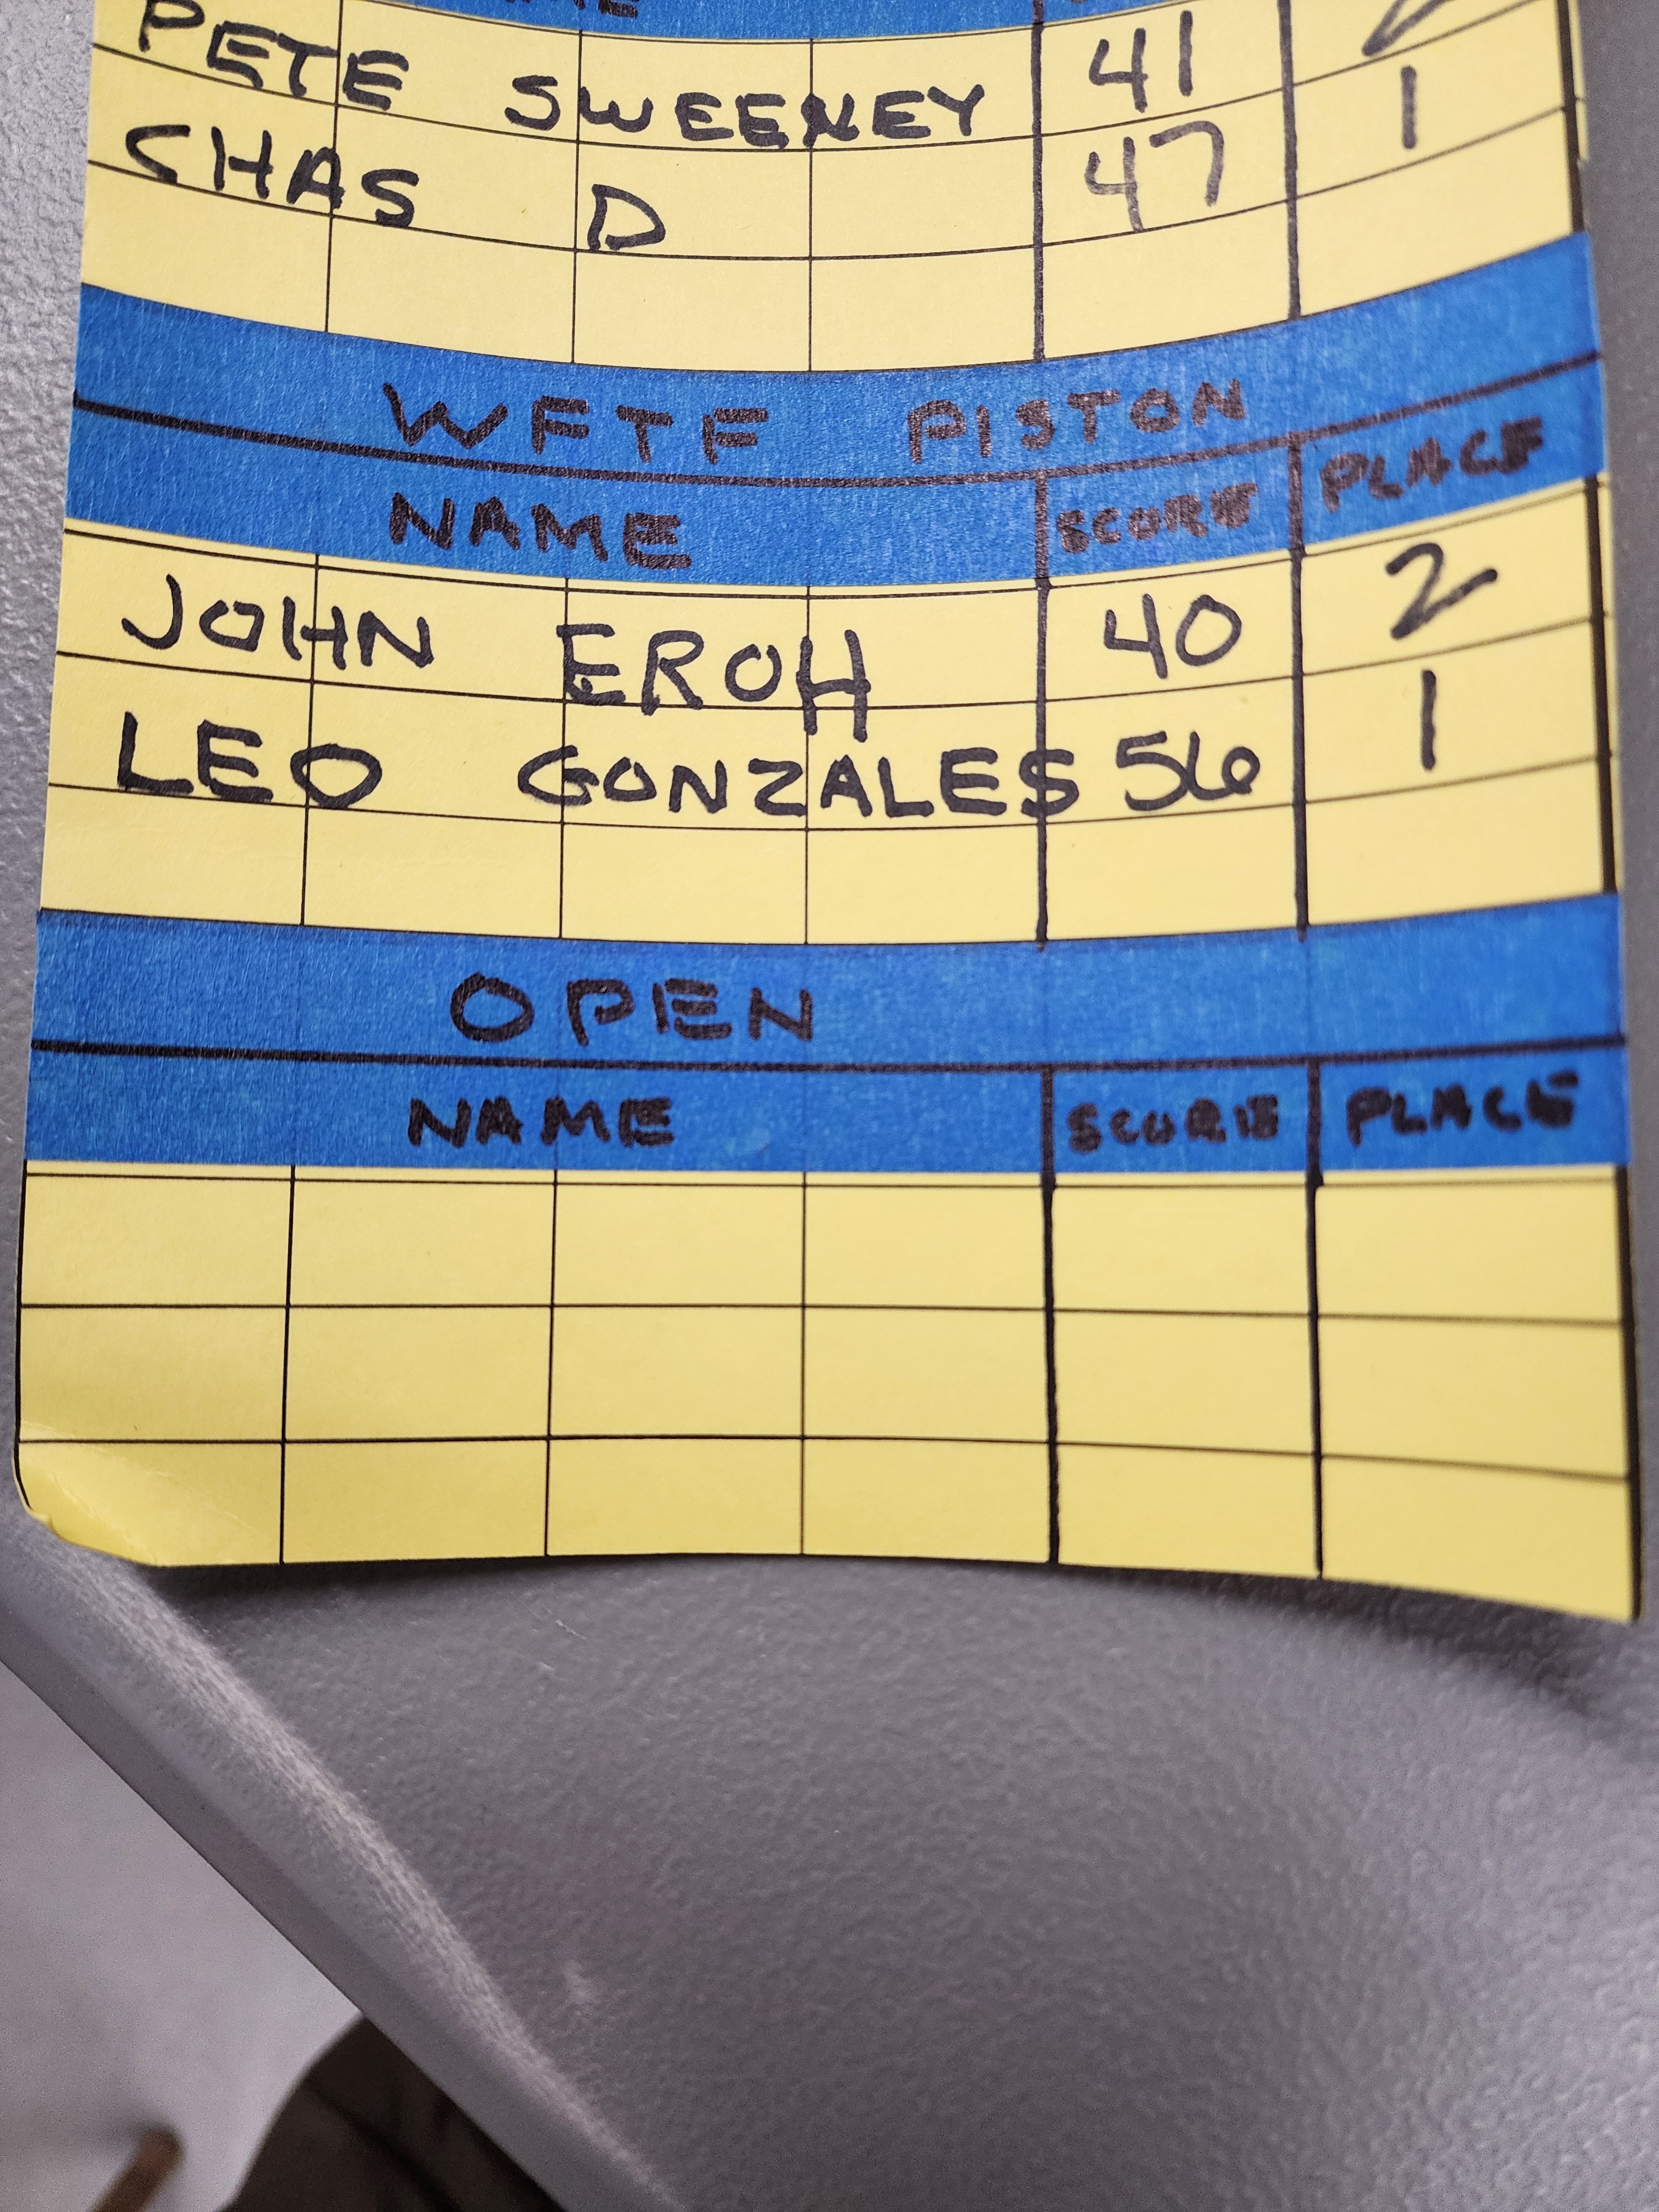 PETE SWEENEY 41 2
CHAS D 47 1
WFTF PISTON
NAME SCORE PLACE
JOHN EROH 40 2
LEO GONZALES 56 1
OPEN
NAME SCORE PLACE